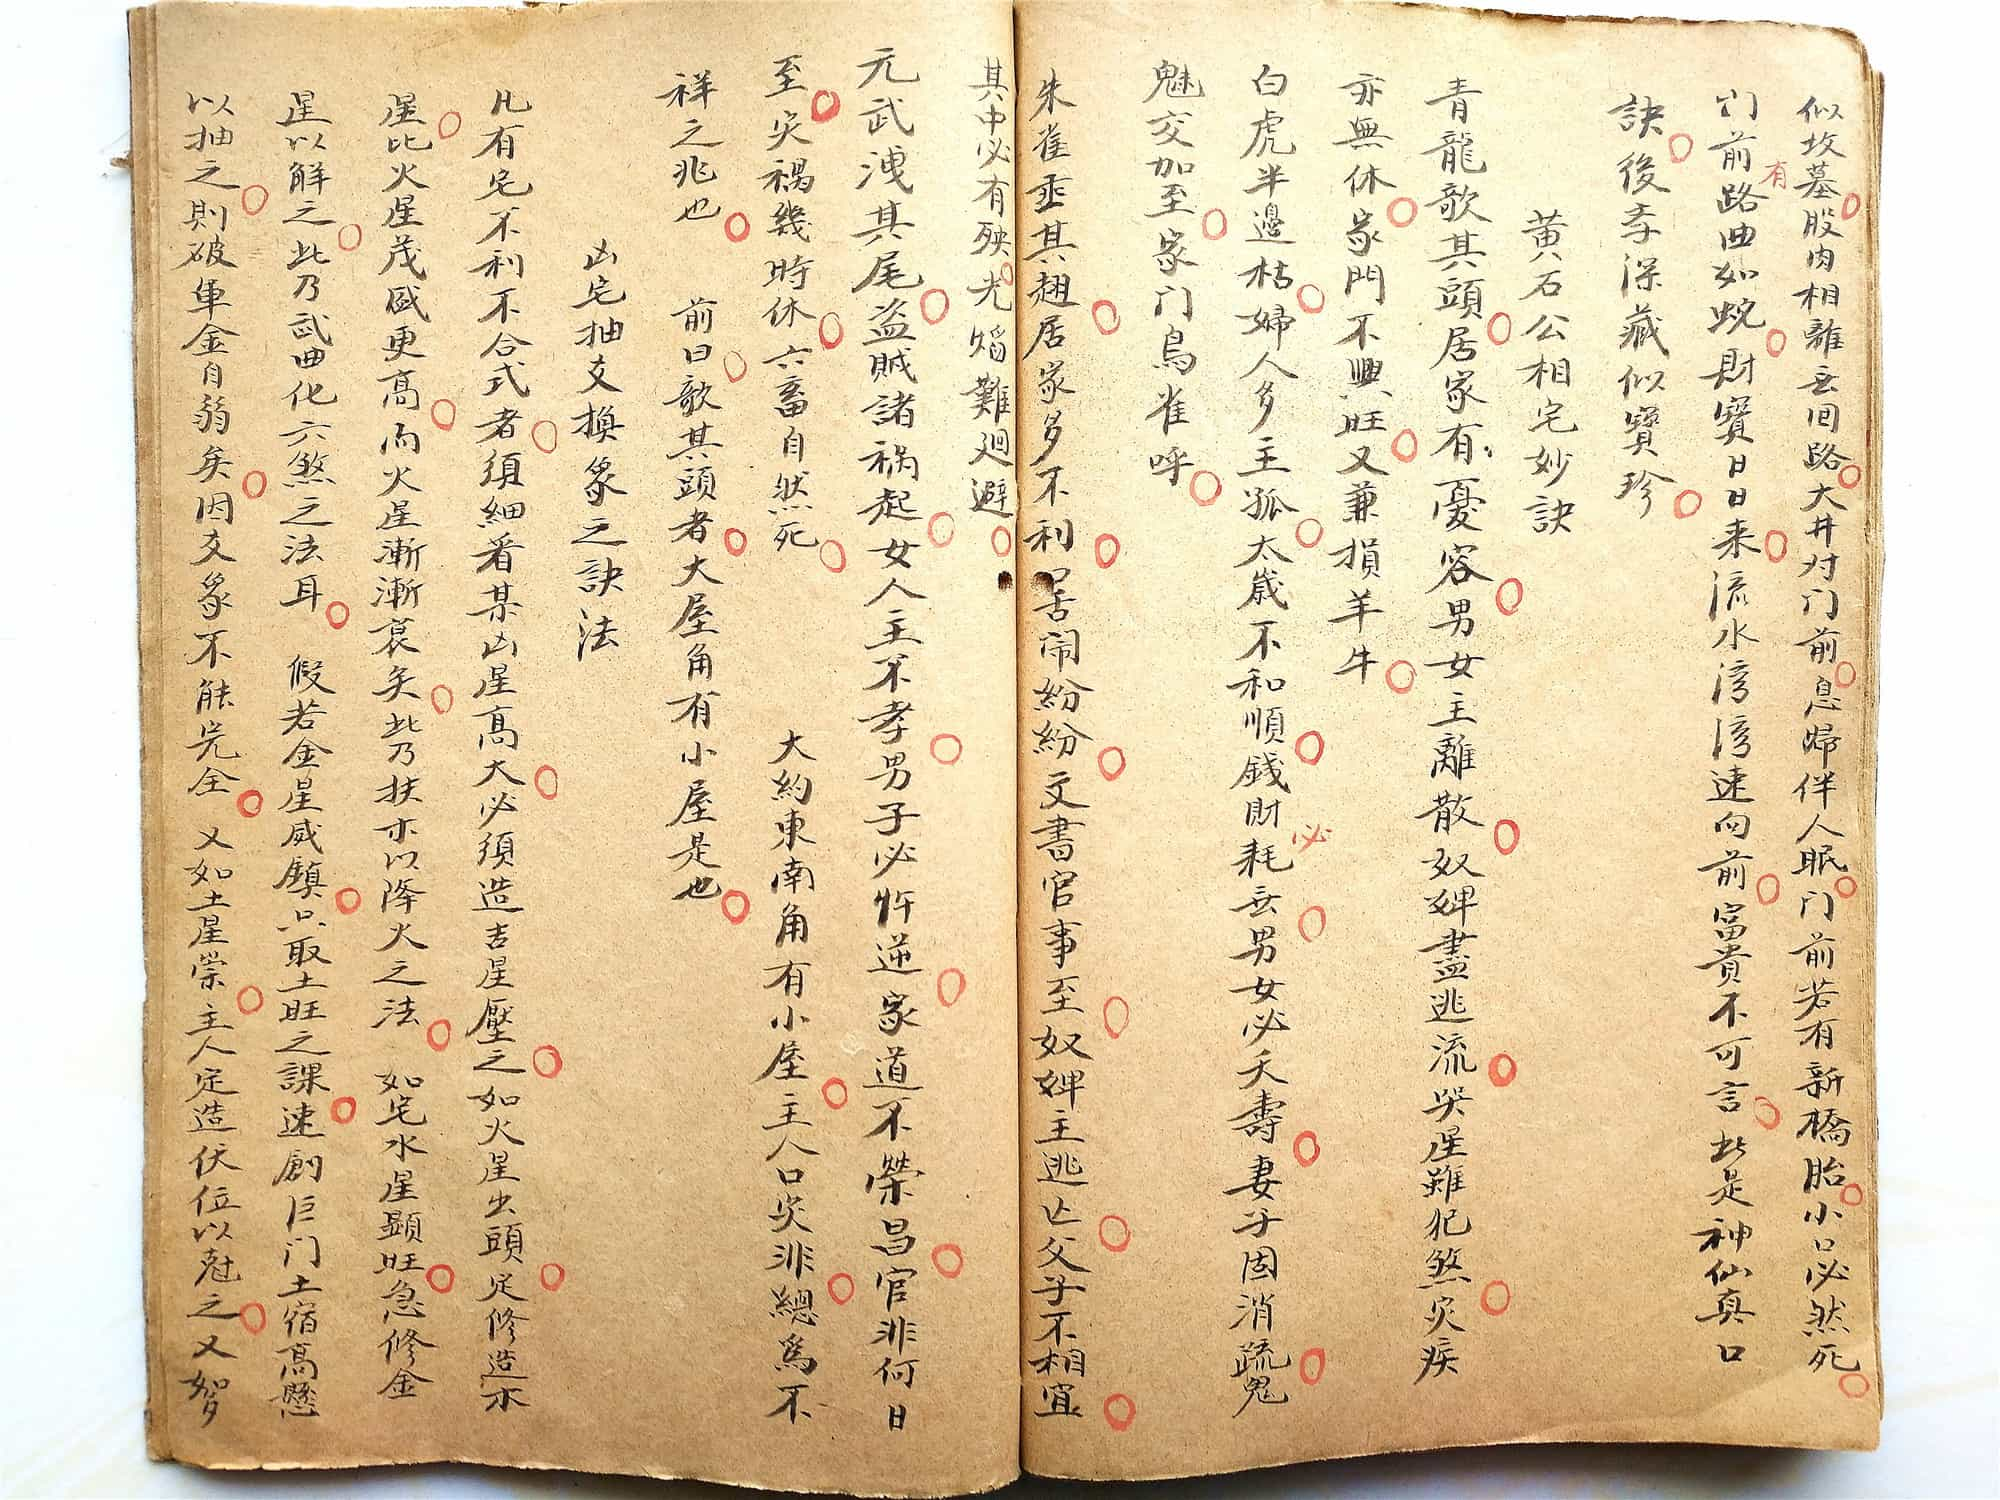 似坟墓股肉相離無回路大井对门前息婦伴人眠门前若有新橋胎小口必然死
门前有路曲如蜿財寶日日来流水湾湾速向前富貴不可言此是神仙真口
訣後李深藏似寶珍
黄石公相宅妙訣
青龍歌其頭居家有憂容男女主離散奴婢盡逃流哭星雖犯煞灾疾
亦無休家門不興旺又兼損羊牛
白虎半邊枯婦人多主孤太歲不和順錢財必耗無男女必夭壽妻子因消疏鬼
魅交加至家门鳥雀呼
朱雀垂其翅居家多不利吵鬧紛紛文書官事至奴婢主逃亡父子不相宜
其中必有殃尤難廻避
元武洩其尾盜賊諸祸起女人主不孝男子必忤逆家道不榮昌官非何日
至灾禍幾時休六畜自然死 大約東南角有小屋主人口灾非總為不
祥之兆也 前曰歌其頭者大屋角有小屋是也
凶宅抽爻換象之訣法
凡有宅不利不合式者須細着某凶星高大必須造吉星壓之如火星出頭定修造水
星比火星茂盛更高而火星漸漸衰矣此乃扶水以降火之法 如宅水星顯旺急修金
星以解之此乃武曲化六煞之法耳 假若金星威鎮只取土旺之課速創巨门土宿高懸
以抽之則破軍金自弱矣因爻象不能完全 又如土星崇主人定造伏位以尅之又如